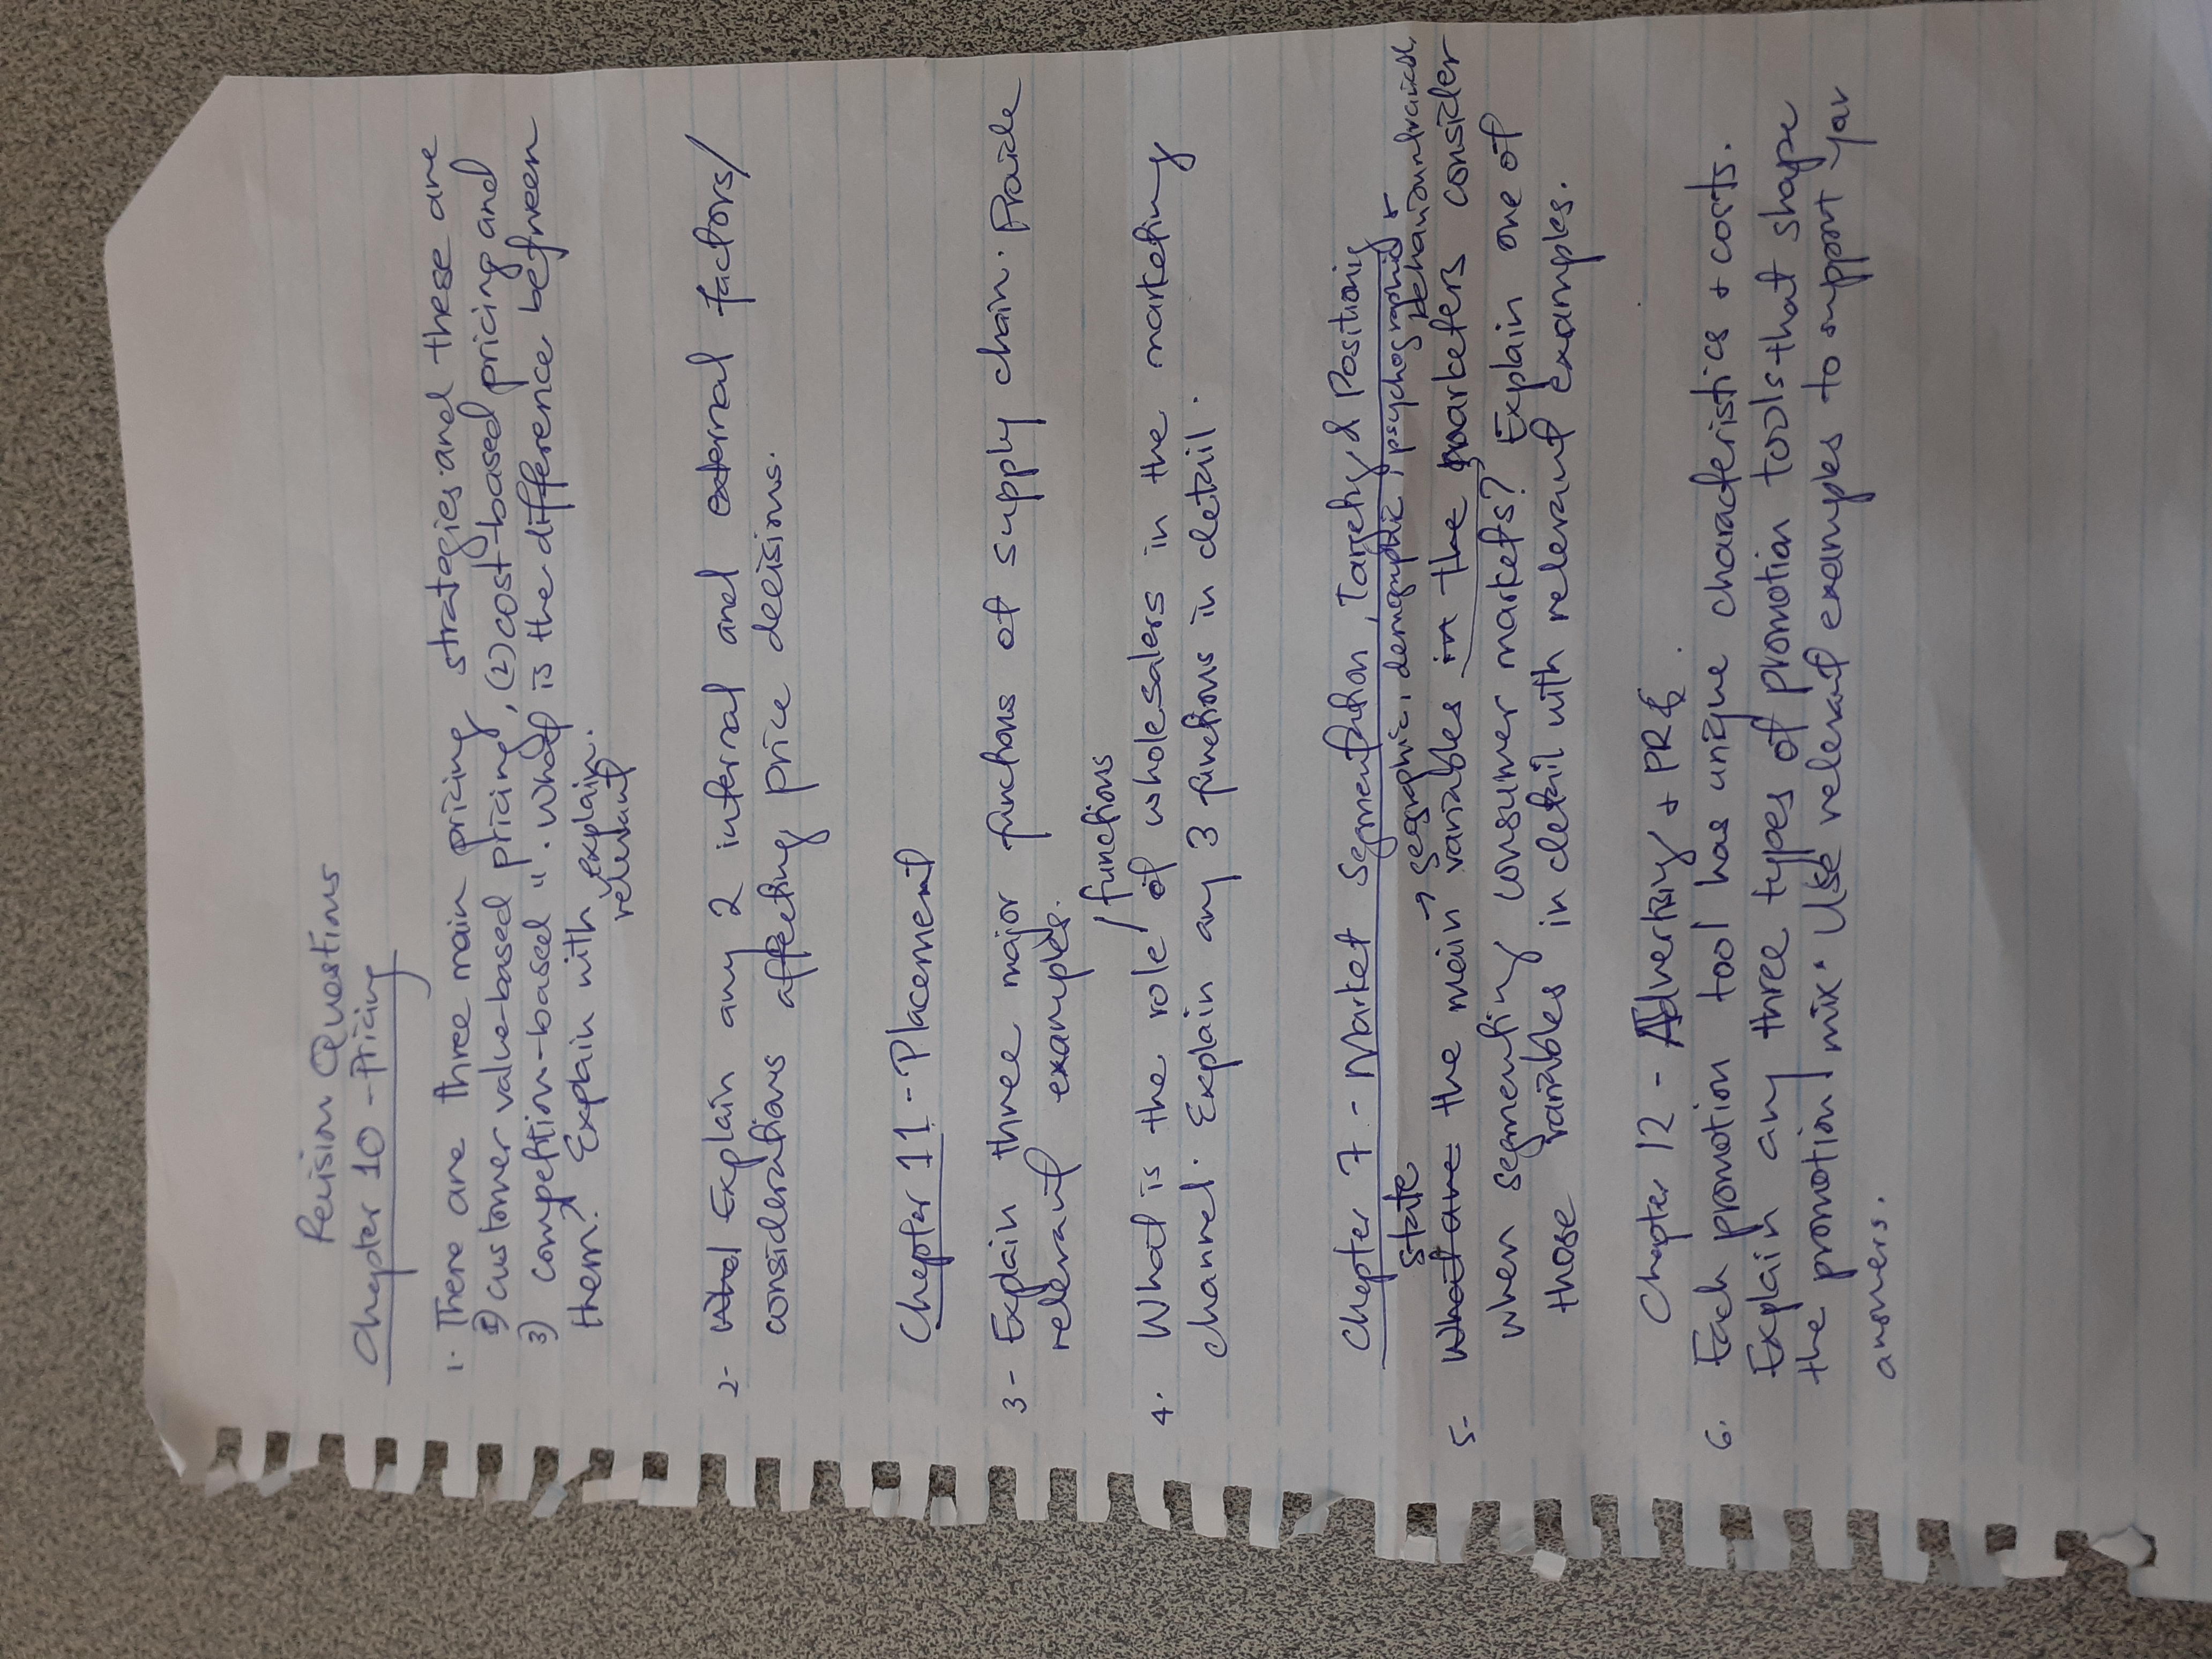 Revision Questions
Chapter 10 - Pricing
1. There are three main pricing strategies and these are
1) customer value-based pricing, (2) cost-based pricing and
3) competition-based " . What is the difference between
them? Explain with explain.
relevant
2- Explain any 2 internal and external factors/
considerations affecting price decisions.
Chapter 11 - Placement
3- Explain three major functions of supply chain. Provide
relevant examples.
/functions
4. What is the role of wholesalers in the marketing
channel. Explain any 3 functions in detail.
Chapter 7 - Market Segmentation, Targeting & Positioning
state → geographic, demographic, psychographic &
behavioural
5- What are the main variables in the marketers consider
when segmenting consumer markets? Explain one of
those variables in detail with relevant examples.
Chapter 12 - Advertising + PR
6. Each promotion tool has unique characteristics + costs.
Explain any three types of promotion tools that shape
the promotion mix. Use relevant examples to support your
answers.